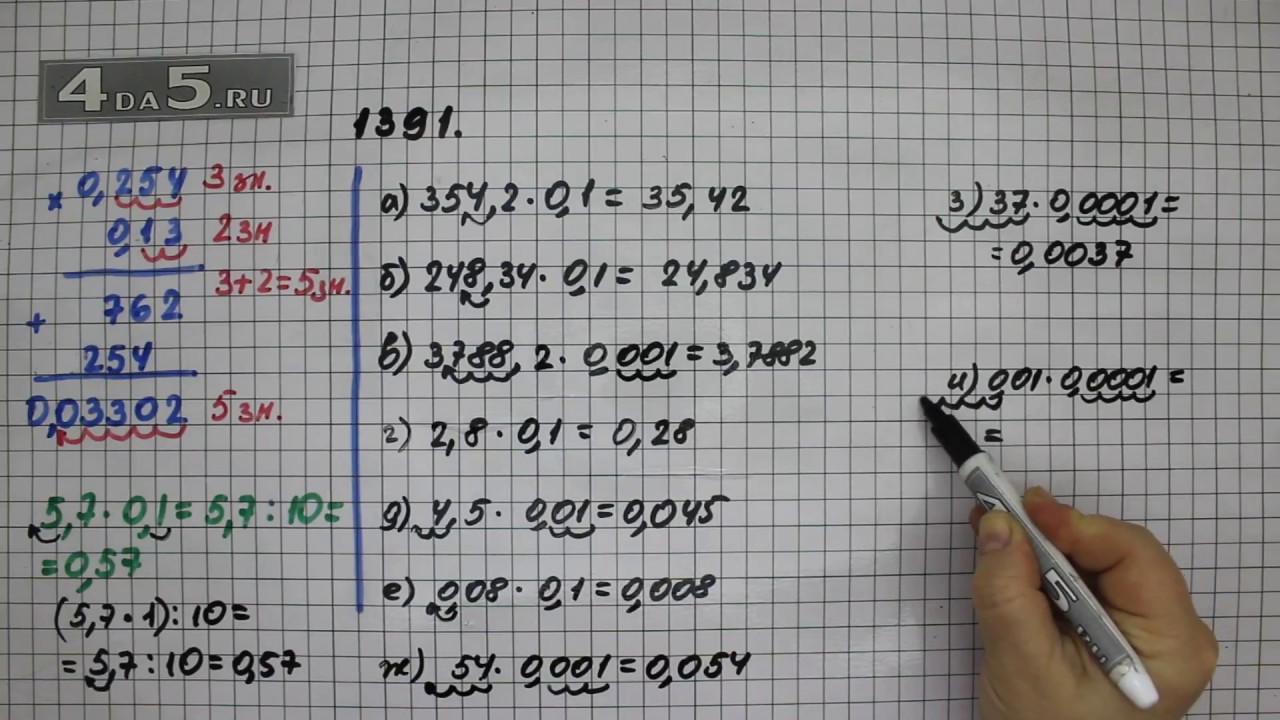 4DA5.RU
1391.
× 0,254 3 зн.
0,13 2 зн
3+2=5 зн.
+ 762
254
0,03302 5 зн.
5,7 · 0,1 = 5,7 : 10 =
= 0,57
(5,7 · 1) : 10 =
= 5,7 : 10 = 0,57
а) 354,2 · 0,1 = 35,42
б) 248,34 · 0,1 = 24,834
в) 3788,2 · 0,001 = 3,7882
г) 2,8 · 0,1 = 0,28
д) 4,5 · 0,01 = 0,045
е) 0,08 · 0,1 = 0,008
ж) 54 · 0,001 = 0,054
з) 37 · 0,0001 =
= 0,0037
и) 0,01 · 0,0001 =
=